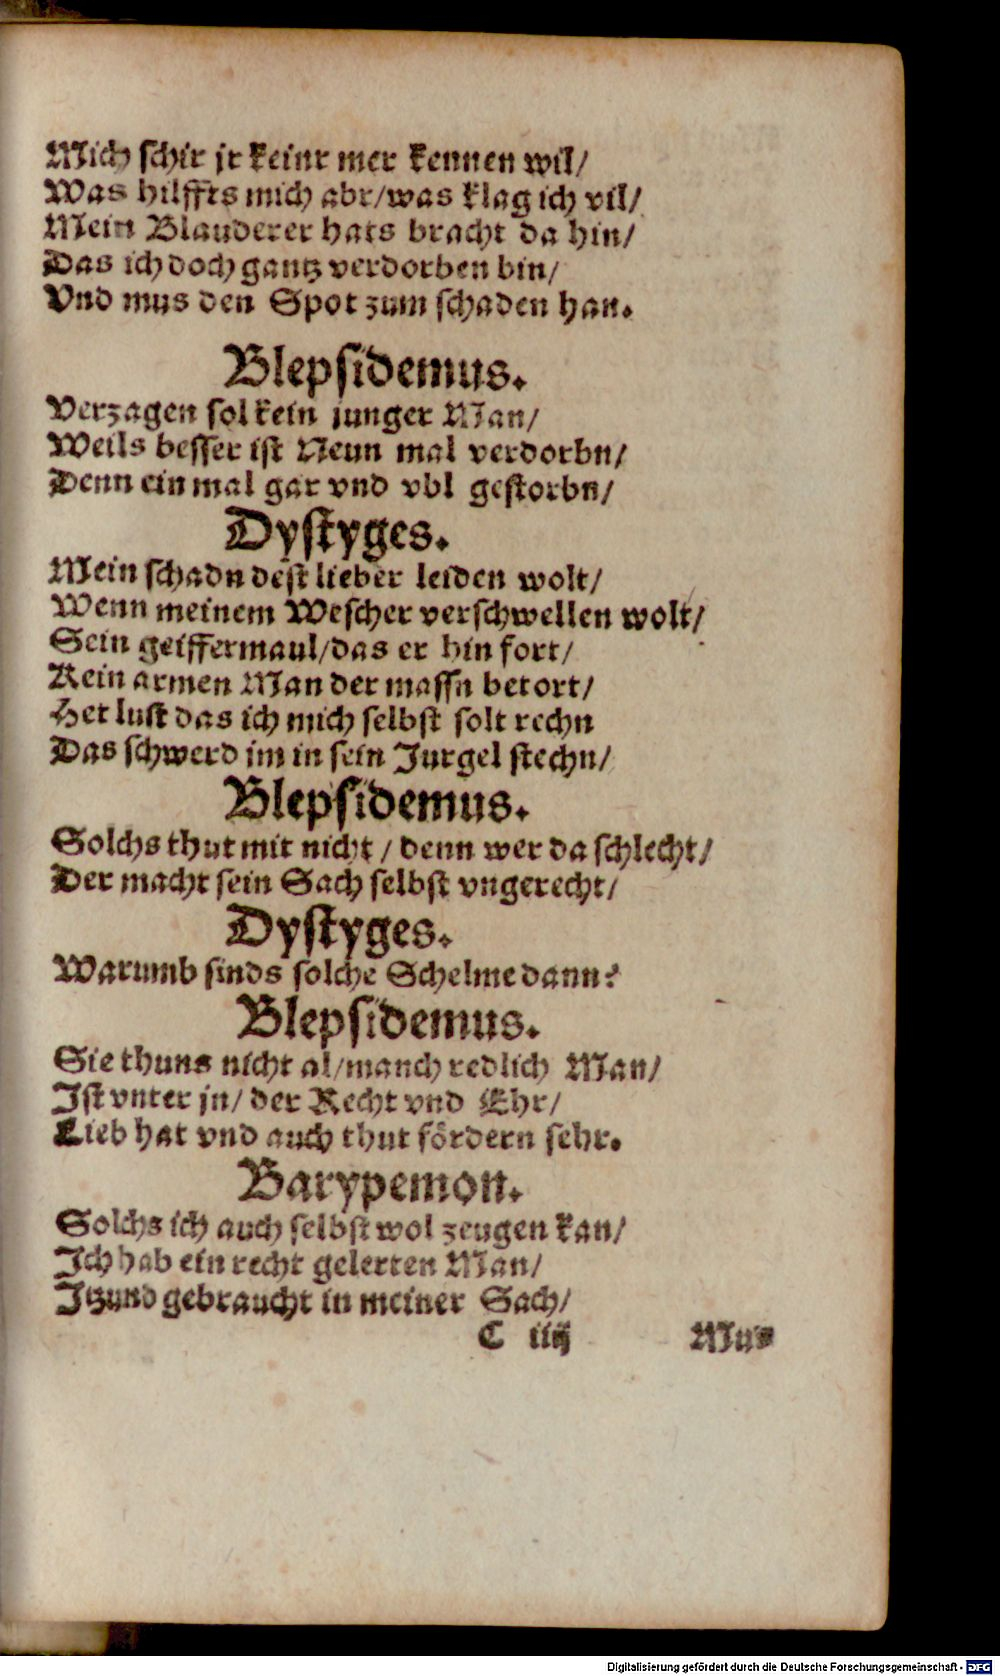 Mich schir jr keinr mer kennen wil/
Was hilffts mich abr/was klag ich vil/
Mein Blauderer hats bracht da hin/
Das ich doch gantz verdorben bin/
Vnd mus den Spot zum schaden han.
Blepsidemus.
Verzagen sol kein junger Man/
Weils besser ist Neun mal verdorbn/
Denn ein mal gar vnd vbl gestorbn/
Dystyges.
Mein schadn dest lieber leiden wolt/
Wenn meinem Wescher verschwellen wolt/
Sein geiffermaul/das er hin fort/
Kein armen Man der massn betort/
Het lust das ich mich selbst solt rechn
Das schwerd jm in sein Jurgel stechn/
Blepsidemus.
Solchs thut mit nicht / denn wer da schlecht/
Der macht sein Sach selbst vngerecht/
Dystyges.
Warumb sinds solche Schelme dann?
Blepsidemus.
Sie thuns nicht al/manch redlich Man/
Ist vnter jn/ der Recht vnd Ehr/
Lieb hat vnd auch thut fördern sehr.
Barypemon.
Solchs ich auch selbst wol zeugen kan/
Ich hab ein recht gelerten Man/
Itzund gebraucht in meiner Sach/
C iiij Mus
Digitalisierung gefördert durch die Deutsche Forschungsgemeinschaft - DFG